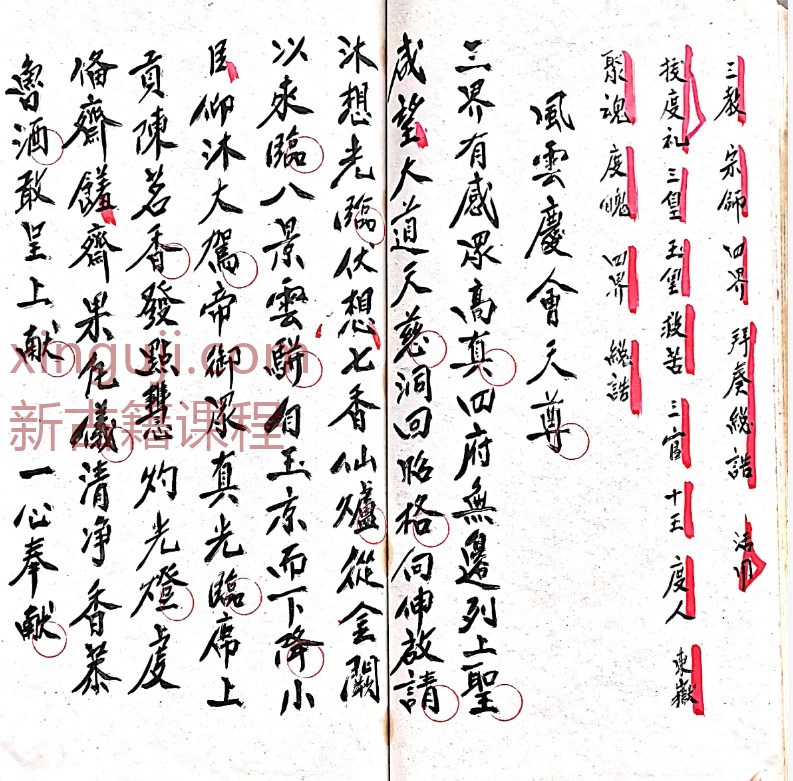 三教 宗師 四界 拜奏總誥 法門
拔度礼 三皇 玉皇 救苦 三官 十王 度人 東嶽
聚魂 度魄 四界 總誥
風雲慶會天尊
三界有感眾高真四府無邊列上聖
咸望大道天慈洞回昭格向伸啟請
沐想光臨伏想七香仙爐從金闕
以來臨八景雲輧自玉京而下降小
臣仰沐大駕帝御眾真光臨席上
貢陳茗香發點慧灼光燈虔
俻齋饈齋果凡儀清净香茶
魯酒敢呈上献 一心奉献
xinguji.com
新古籍课程